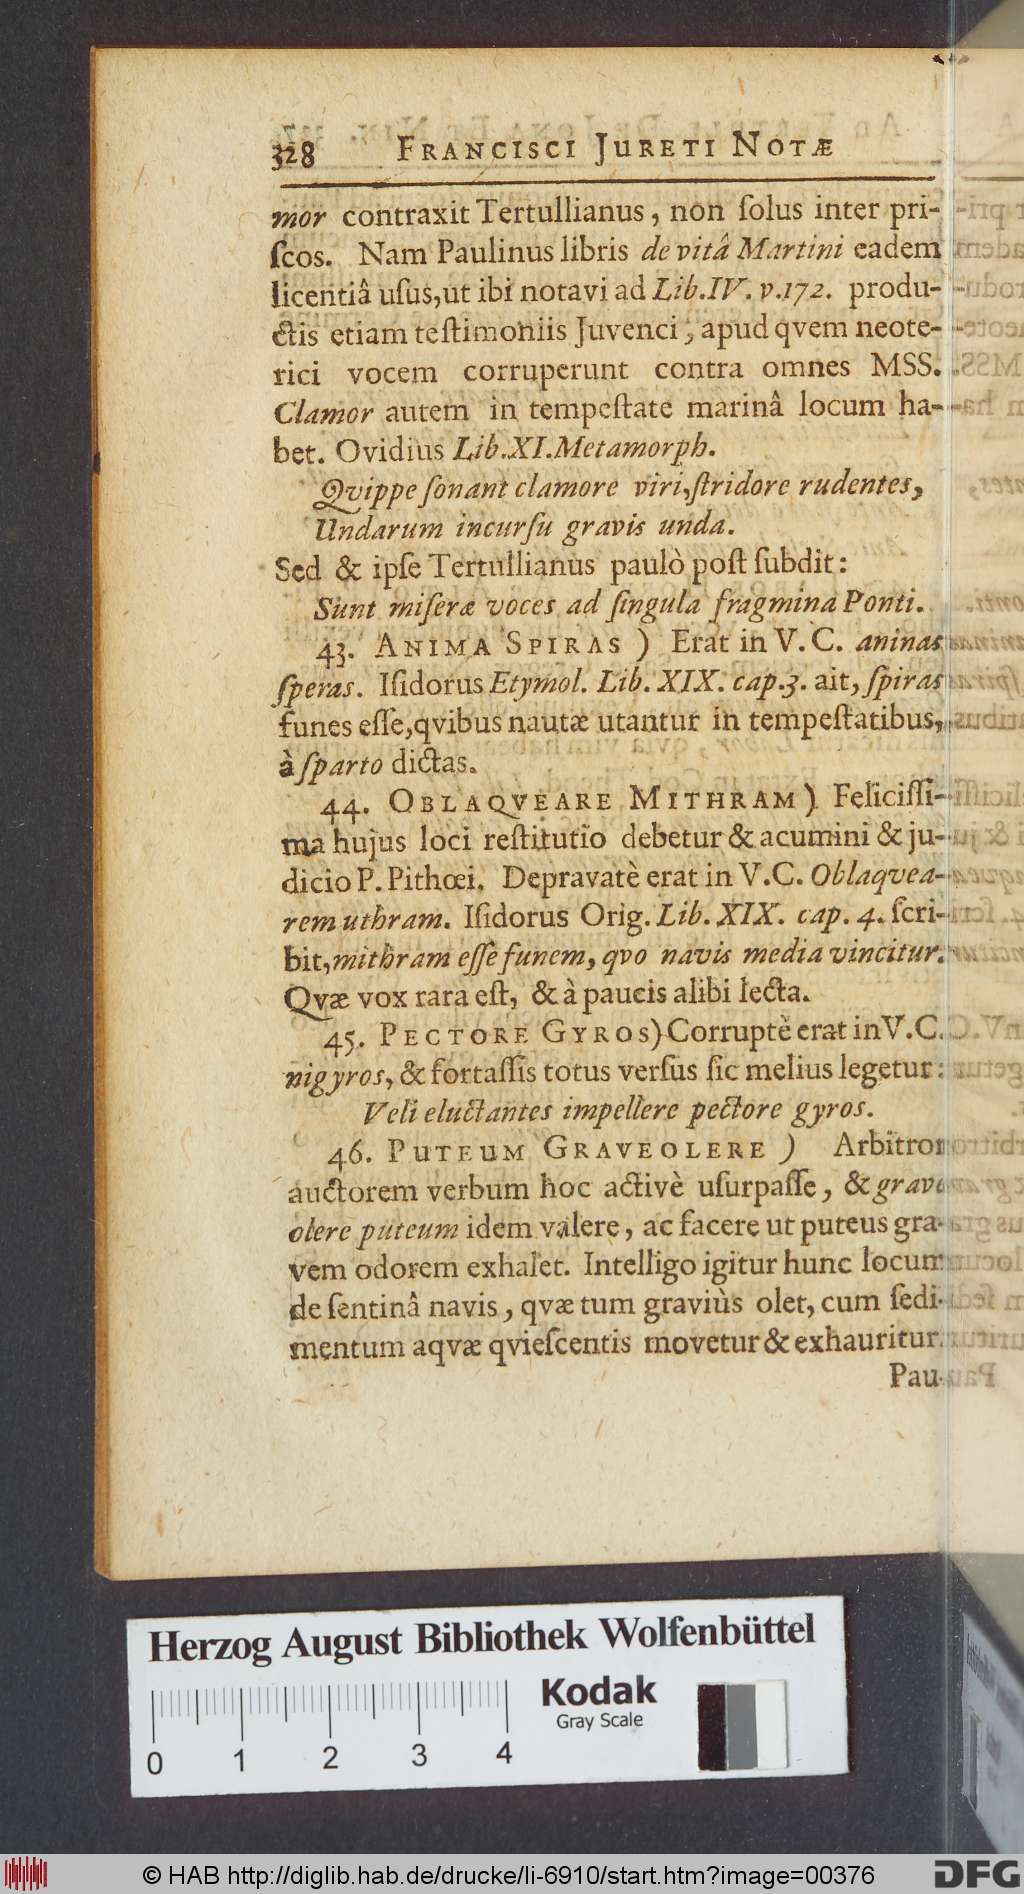 328 FRANCISCI JURETI NOTÆ
mor contraxit Tertullianus, non ſolus inter pri-
ſcos. Nam Paulinus libris de vitâ Martini eadem
licentiâ uſus,ut ibi notavi ad Lib.IV. v.172. produ-
ctis etiam teſtimoniis Juvenci, apud qvem neote-
rici vocem corruperunt contra omnes MSS.
Clamor autem in tempeſtate marinâ locum ha-
bet. Ovidius Lib.XI.Metamorph.
Qvippe ſonant clamore viri,ſtridore rudentes,
Undarum incurſu gravis unda.
Sed & ipſe Tertullianus paulò poſt ſubdit:
Sunt miſeræ voces ad ſingula fragmina Ponti.
43. ANIMA SPIRAS ) Erat in V.C. aninas
ſperas. Iſidorus Etymol. Lib. XIX. cap.3. ait, ſpiras
funes eſſe,qvibus nautæ utantur in tempeſtatibus,
à ſparto dictas.
44. OBLAQVEARE MITHRAM) Feliciſſi-
ma hujus loci reſtitutio debetur & acumini & ju-
dicio P. Pithœi. Depravatè erat in V.C. Oblaqvea-
rem uthram. Iſidorus Orig. Lib. XIX. cap. 4. ſcri-
bit,mithram eſſe funem, qvo navis media vincitur.
Qvæ vox rara eſt, & à paucis alibi lecta.
45. PECTORE GYROS) Corruptè erat in V.C.
nigyros, & fortaſſis totus verſus ſic melius legetur:
Veli eluctantes impellere pectore gyros.
46. PUTEUM GRAVEOLERE ) Arbitror
auctorem verbum hoc activè uſurpaſſe, & grave
olere puteum idem valere, ac facere ut puteus gra-
vem odorem exhalet. Intelligo igitur hunc locum
de ſentinâ navis, qvæ tum graviùs olet, cum ſedi-
mentum aqvæ qvieſcentis movetur & exhauritur.
Pau-
Herzog August Bibliothek Wolfenbüttel
Kodak
Gray Scale
0 1 2 3 4
© HAB http://diglib.hab.de/drucke/li-6910/start.htm?image=00376
DFG